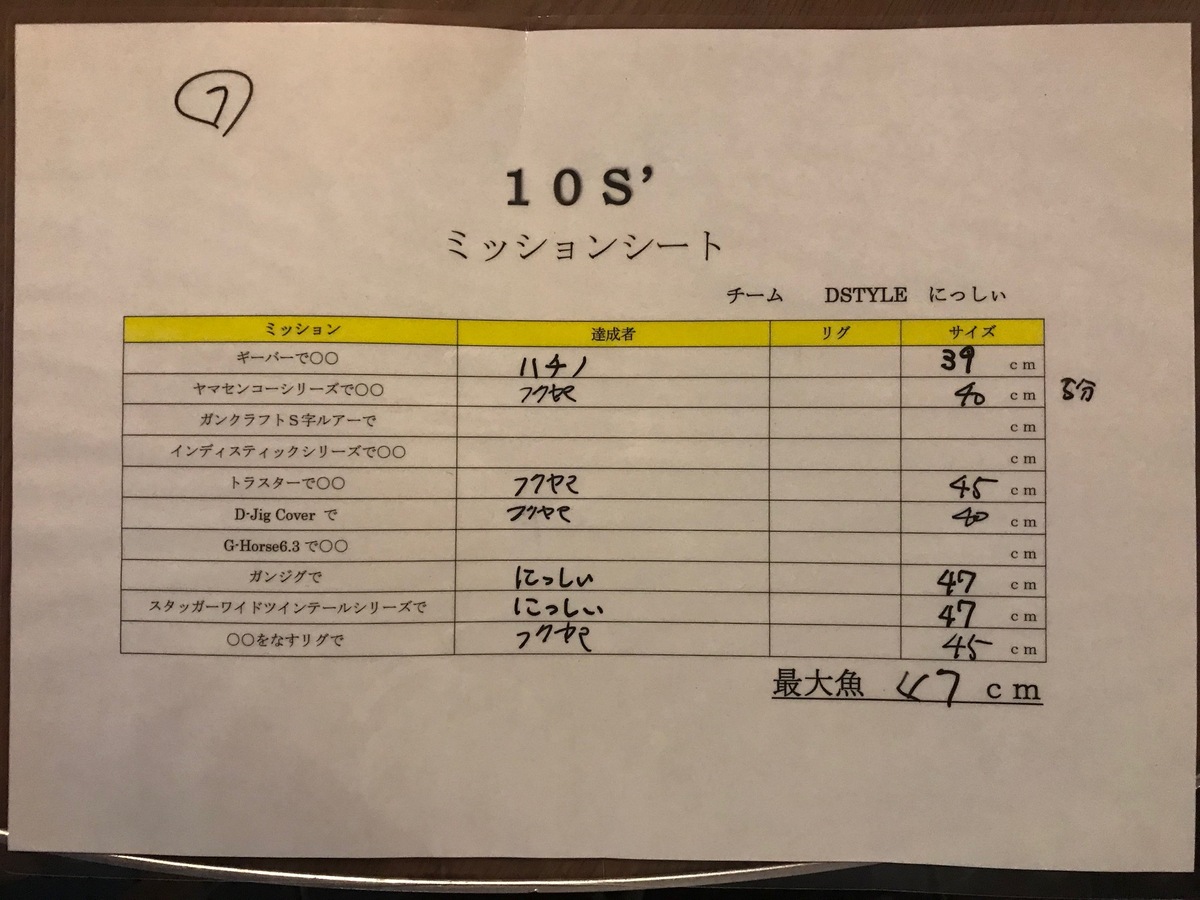 7
10S’
ミッションシート
チーム DSTYLE にっしぃ
ミッション 達成者 リグ サイズ
ギーバーで〇〇 ハチノ 39 cm
ヤマセンコーシリーズで〇〇 フクヤマ 40 cm 5分
ガンクラフトS字ルアーで cm
インディスティックシリーズで〇〇 cm
トラスターで〇〇 フクヤマ 45 cm
D-Jig Cover で フクヤマ 40 cm
G-Horse6.3 で〇〇 cm
ガンジグで にっしぃ 47 cm
スタッガーワイドツインテールシリーズで にっしぃ 47 cm
〇〇をなすリグで フクヤマ 45 cm
最大魚 47 cm